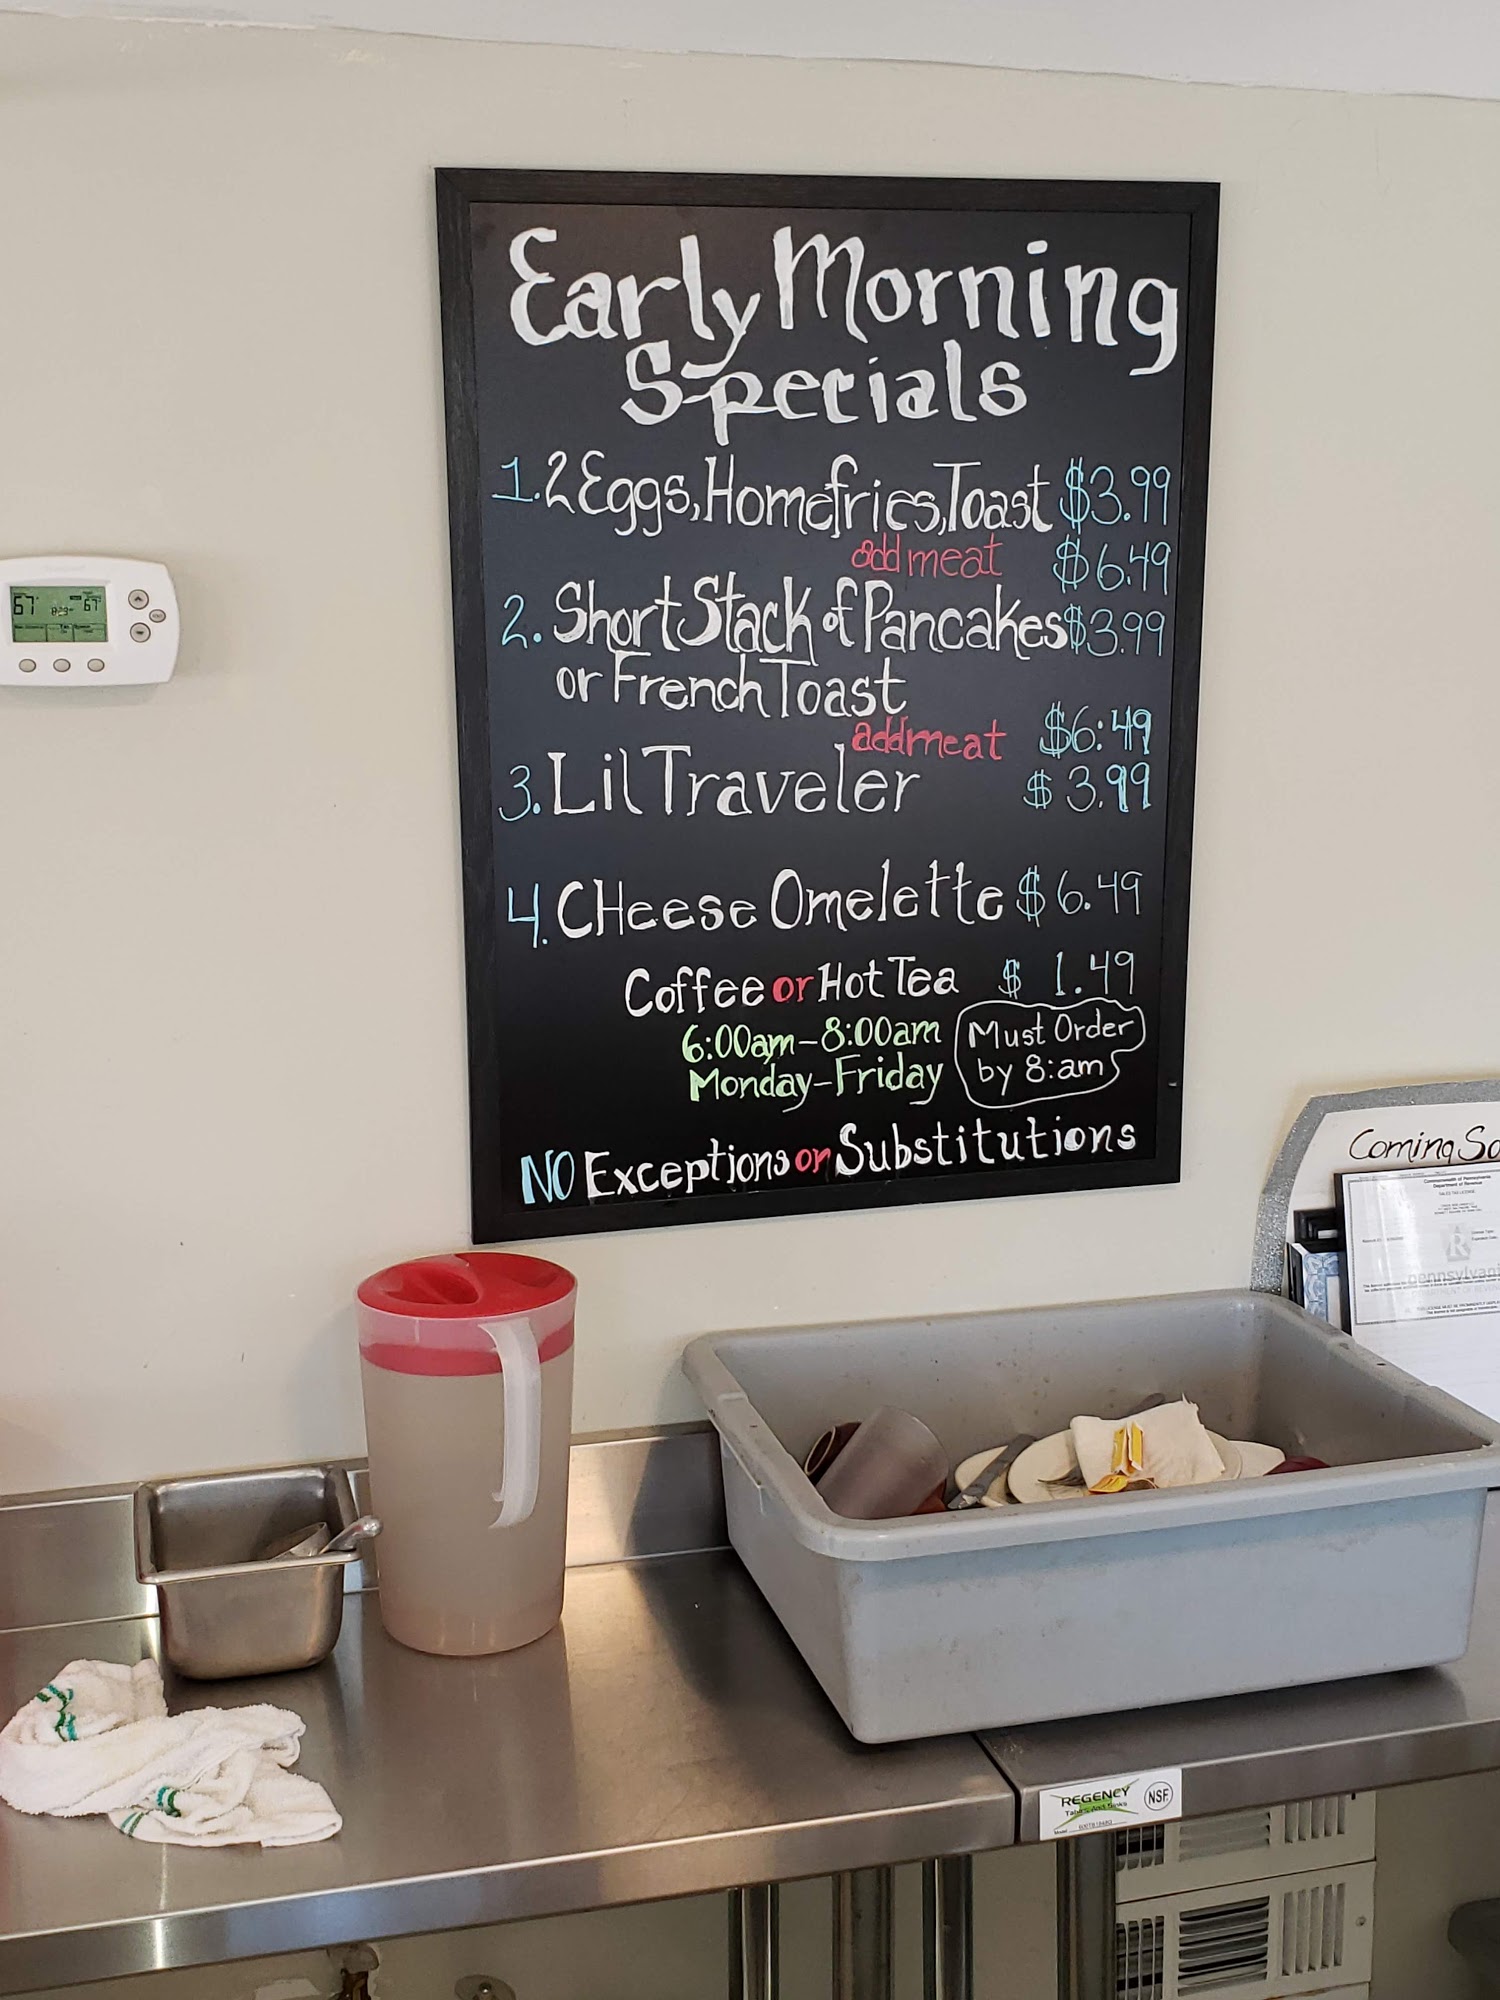 Early Morning
Specials
1. 2 Eggs, Homefries, Toast $3.99
add meat $6.49
2. Short Stack of Pancakes $3.99
or French Toast
add meat $6.49
3. Lil Traveler $3.99
4. CHeese Omelette $6.49
Coffee or Hot Tea $1.49
6:00am-8:00am
Monday-Friday
Must Order
by 8:am
NO Exceptions or Substitutions
67° 67°
Coming So
Commonwealth of Pennsylvania
Department of Revenue
pennsylvani
REGENCY
Tables And Sinks
NSF